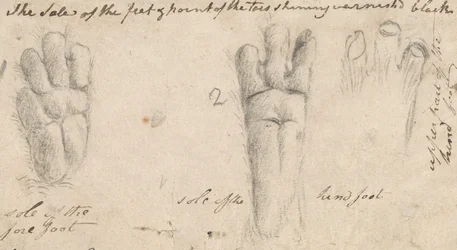 The Sole of the feet & point of the toes shining varnish'd black
2
sole of the
fore foot
sole of the hind foot
upper part of the
hind foot